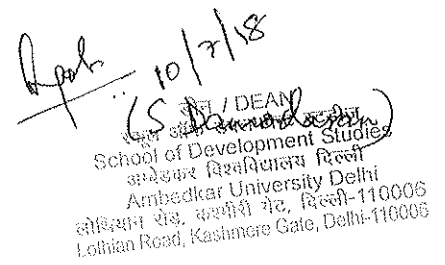 10/7/18
डीन / DEAN
(S Damodaran)
स्कूल ऑफ
School of Development Studies
अम्बेडकर विश्वविद्यालय दिल्ली
Ambedkar University Delhi
लोथियान रोड, कश्मीरी गेट, दिल्ली-110006
Lothian Road, Kashmere Gate, Delhi-110006